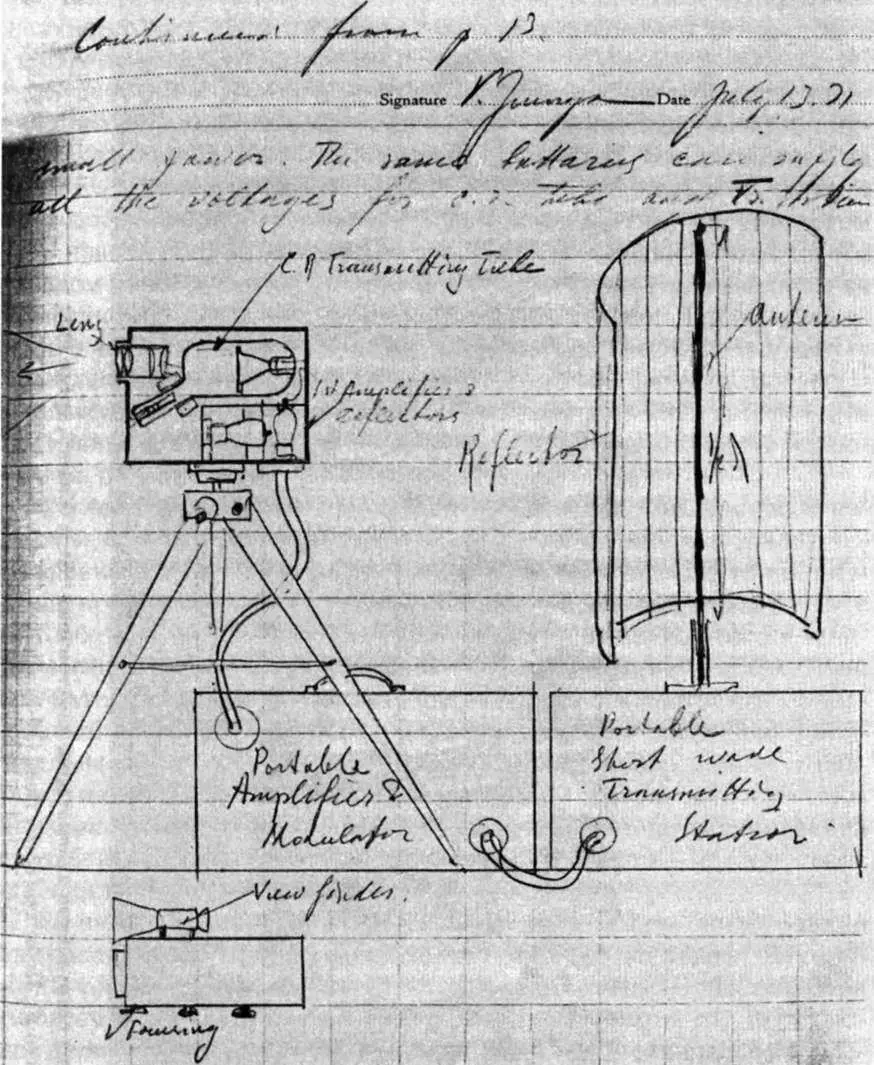 Continued from p 13.
Signature V. Zworykin Date July 13.31
small power. The same batteries can supply
all the voltages for c.r. tube and Tr. station
C.R Transmitting Tube
Lens
Amplifier &
Deflectors
Reflector
antenna
Portable
Amplifier &
Modulator
Portable
Short wave
Transmitting
Station
View finder.
Focusing